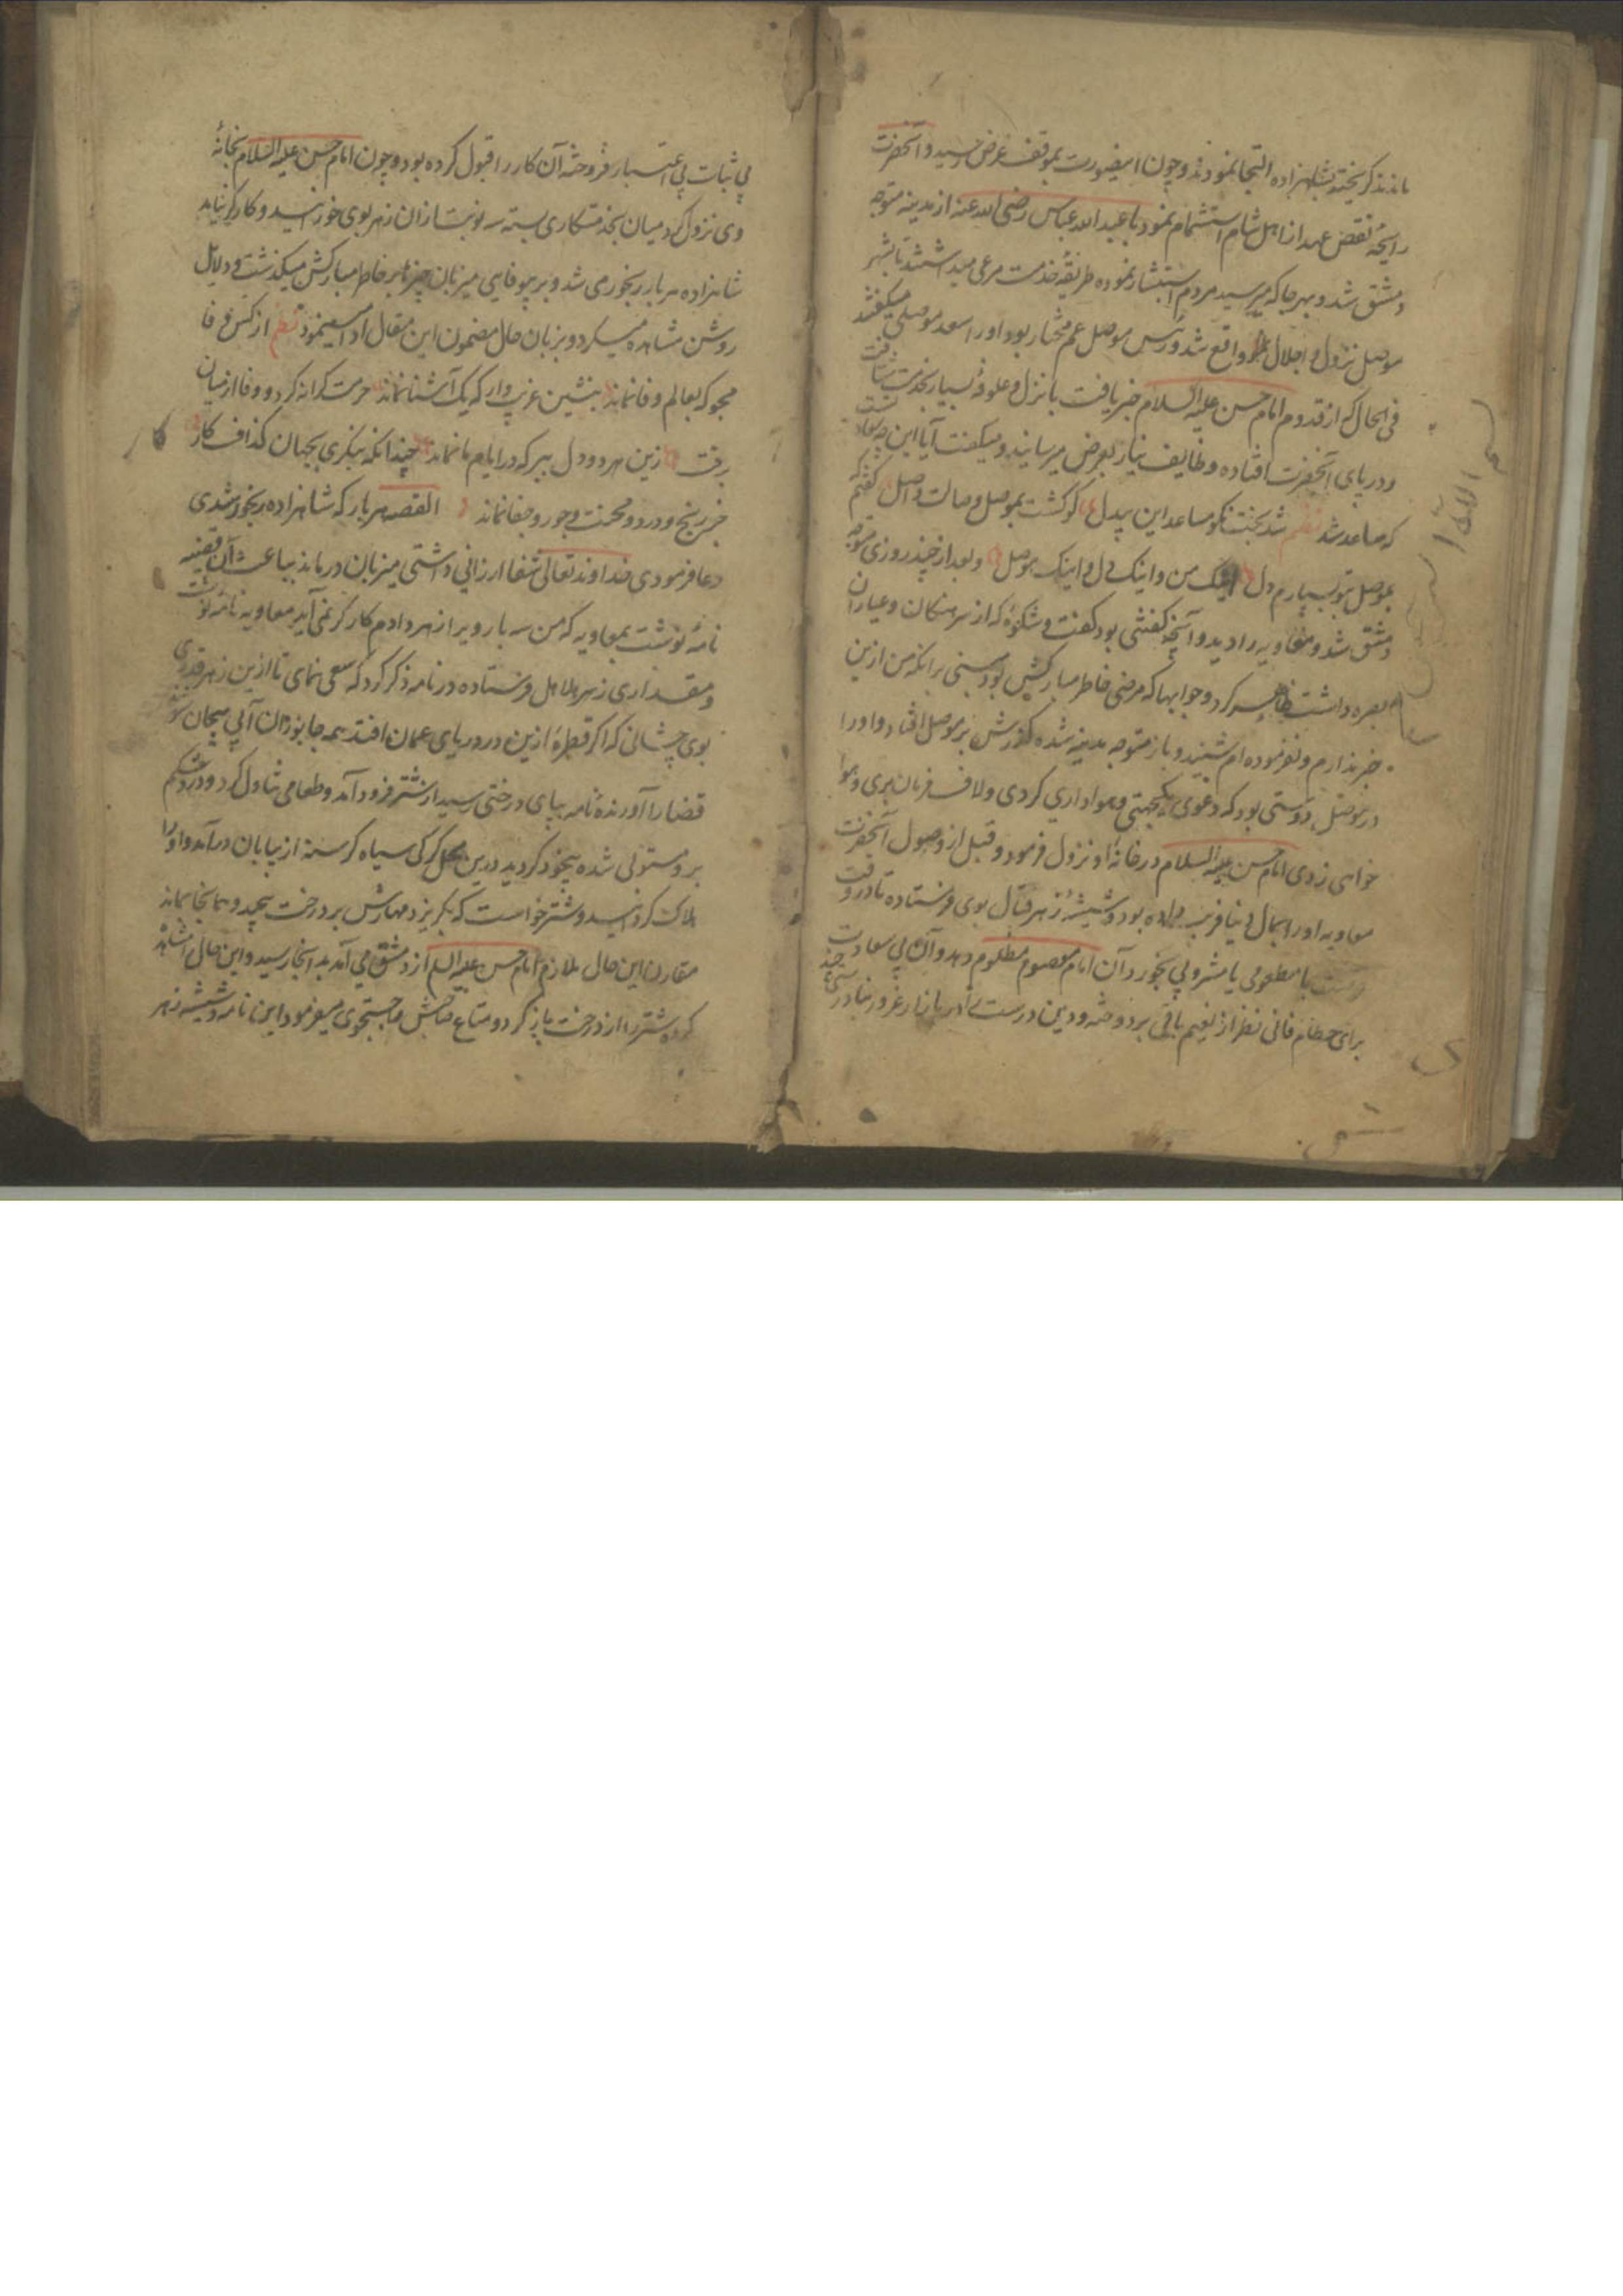 ماندند کریخته بشاهزاده التجا نمودند و چون اینصورت بموقف عرض رسید و آنحضرت
رایحهٔ نقض عهد از اهل شام استشمام نمود با عبد الله عباس رضی الله عنه از مدینه متوجه
دمشق شد و بهر جا که میرسید مردم استبشار نموده طریقهٔ خدمت مرعی میداشتند تا بشهر
موصل نزول اجلال واقع شد و رئیس موصل عم مختار بود او را سعد موصلی میگفتند
فی الحال که از قدوم امام حسن علیه السلام خبر یافت با نزل و علوفهٔ بسیار بخدمت شتافت
و در پای آنحضرت افتاده وظایف نیاز بعرض میرسانید و میگفت آیا این چه سعادتست
که مساعد شد نظم شد بخت نکو مساعد این بیدل کو کشت بموصل وصالت واصل گفتم که
بموصل تو بسپارم دل اینک من و اینک دل و اینک موصل و بعد از چند روزی متوجه
دمشق شد و معاویه را دید و آنچه گفتنی بود گفت و شکوهٔ که از سرهنگان و عیاران
بصره داشت ظاهر کرد و جوابها که مرضی خاطر مبارکش بود مبنی برانکه من ازین
خبر ندارم و نفرموده ام شنید و باز متوجه مدینه شده گذرش بر موصل افتاد و او را
در موصل دوستی بود که دعوی یکجهتی و هواداری کردی و لاف فرمان بری و هوا
خواهی زدی امام حسن علیه السلام در خانهٔ او نزول فرمود و قبل از وصول آنحضرت
معاویه او را بمال دنیا فریب داده بود و شیشهٔ زهر قتال بوی فرستاده تا در وقت
فرصت با مطعومی یا مشروبی بخورد آن امام معصوم مظلوم دهد و آن بی سعادت
برای حطام فانی نظر از نعیم باقی بردوخته و دین درست را در بازار غرور بنادرستی چند
بی ثبات بی اعتبار فروخته آن کار را قبول کرده بود و چون امام حسن علیه السلام بخانهٔ
وی نزول کرد میان بخدمتکاری بسته سه نوبت ازان زهر بوی خورانید و کارگر نیامد
شاهزاده هر بار رنجور می شد و بر بیوفایی میزبان چیزها بر خاطر مبارکش میگذشت و دلایل
روشن مشاهده میکرد و بزبان حال مضمون این مقال ادا مینمود نظم از کس وفا
مجو که بعالم وفا نماند بنشین غریب وار که یک آشنا نماند حرمت کرانه کرد و وفا از میان
برفت زین هر دو دل ببر که در ایام ما نماند چندانکه بنگری بجهان گذاف کار
جز رنج و درد و محنت و جور و جفا نماند القصه هر بار که شاهزاده رنجور شدی
دعا فرمودی خداوند تعالی شفا ارزانی داشتی میزبان درماند بباعث آن قضیه
نامهٔ نوشت بمعاویه که من سه بار ویرا زهر دادم کارگر نمی آید معاویه نامه نوشت
و مقداری زهر هلاهل فرستاده در نامه ذکر کرد که سعی نمای تا ازین زهر قدری
بوی چشانی که اگر قطرهٔ ازین در دریای عمان افتد همه جانوران آبی بیجان شوند
قضا را آورندهٔ نامه بپای درختی رسید از شتر فرود آمد و طعامی تناول کرد و درد شکم
برو مستولی شده بیخود گردید درین محل گرگی سیاه گرسنه از بیابان درآمد و او را
هلاک گردانید و شتر خواست که بگریزد مهارش بر درخت پیچید و همانجا بماند
مقارن این حال ملازم امام حسن علیه السلام از دمشق می آمد بدانجا رسید و این حال مشاهده
کرد شتر را از درخت باز کرد و متاع جستجوی میفرمود این نامه و شیشه زهر